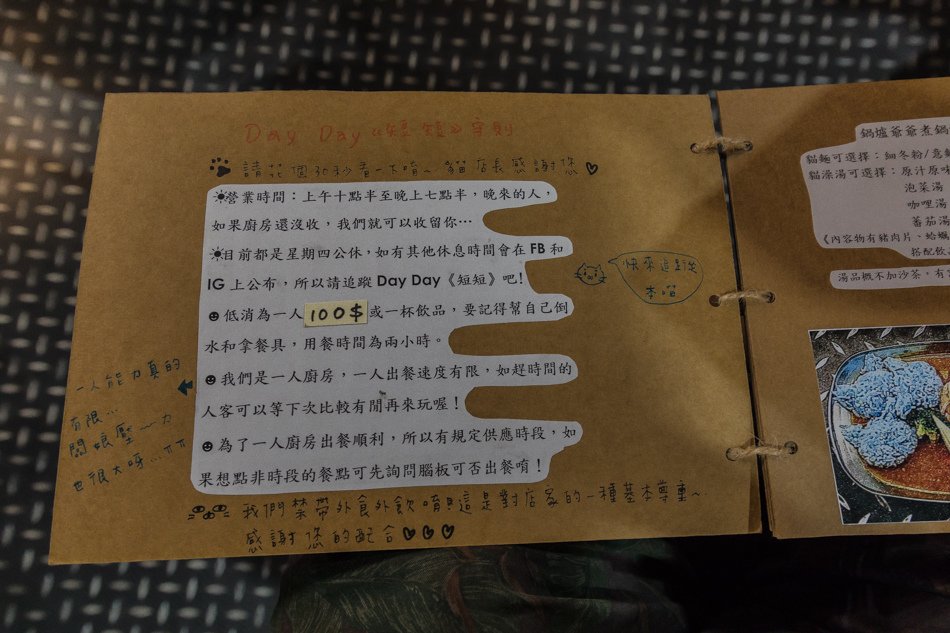 Day Day《短短》守則
請花個30秒看一下唷~ 貓店長感謝您
營業時間：上午十點半至晚上七點半，晚來的人，
如果廚房還沒收，我們就可以收留你…
目前都是星期四公休，如有其他休息時間會在 FB 和
IG 上公布，所以請追蹤 Day Day《短短》吧!
低消為一人 100$ 或一杯飲品，要記得幫自己倒
水和拿餐具，用餐時間為兩小時。
我們是一人廚房，一人出餐速度有限，如趕時間的
人客可以等下次比較有閒再來玩喔！
為了一人廚房出餐順利，所以有規定供應時段，如
果想點非時段的餐點可先詢問腦板可否出餐唷！
我們禁帶外食外飲唷!這是對店家的一種基本尊重~
感謝您的配合
快來追蹤
本喵
一人能力真的
有限…
闆娘壓~~力
也很大呀…ㅠㅠ
鍋爐爺爺煮鍋
貓麵可選擇：細冬粉/意
貓澡湯可選擇：原汁原味
泡菜湯
咖哩湯
蕃茄湯
《內容物有豬肉片、蛤
搭配飲
湯品概不加沙茶，有